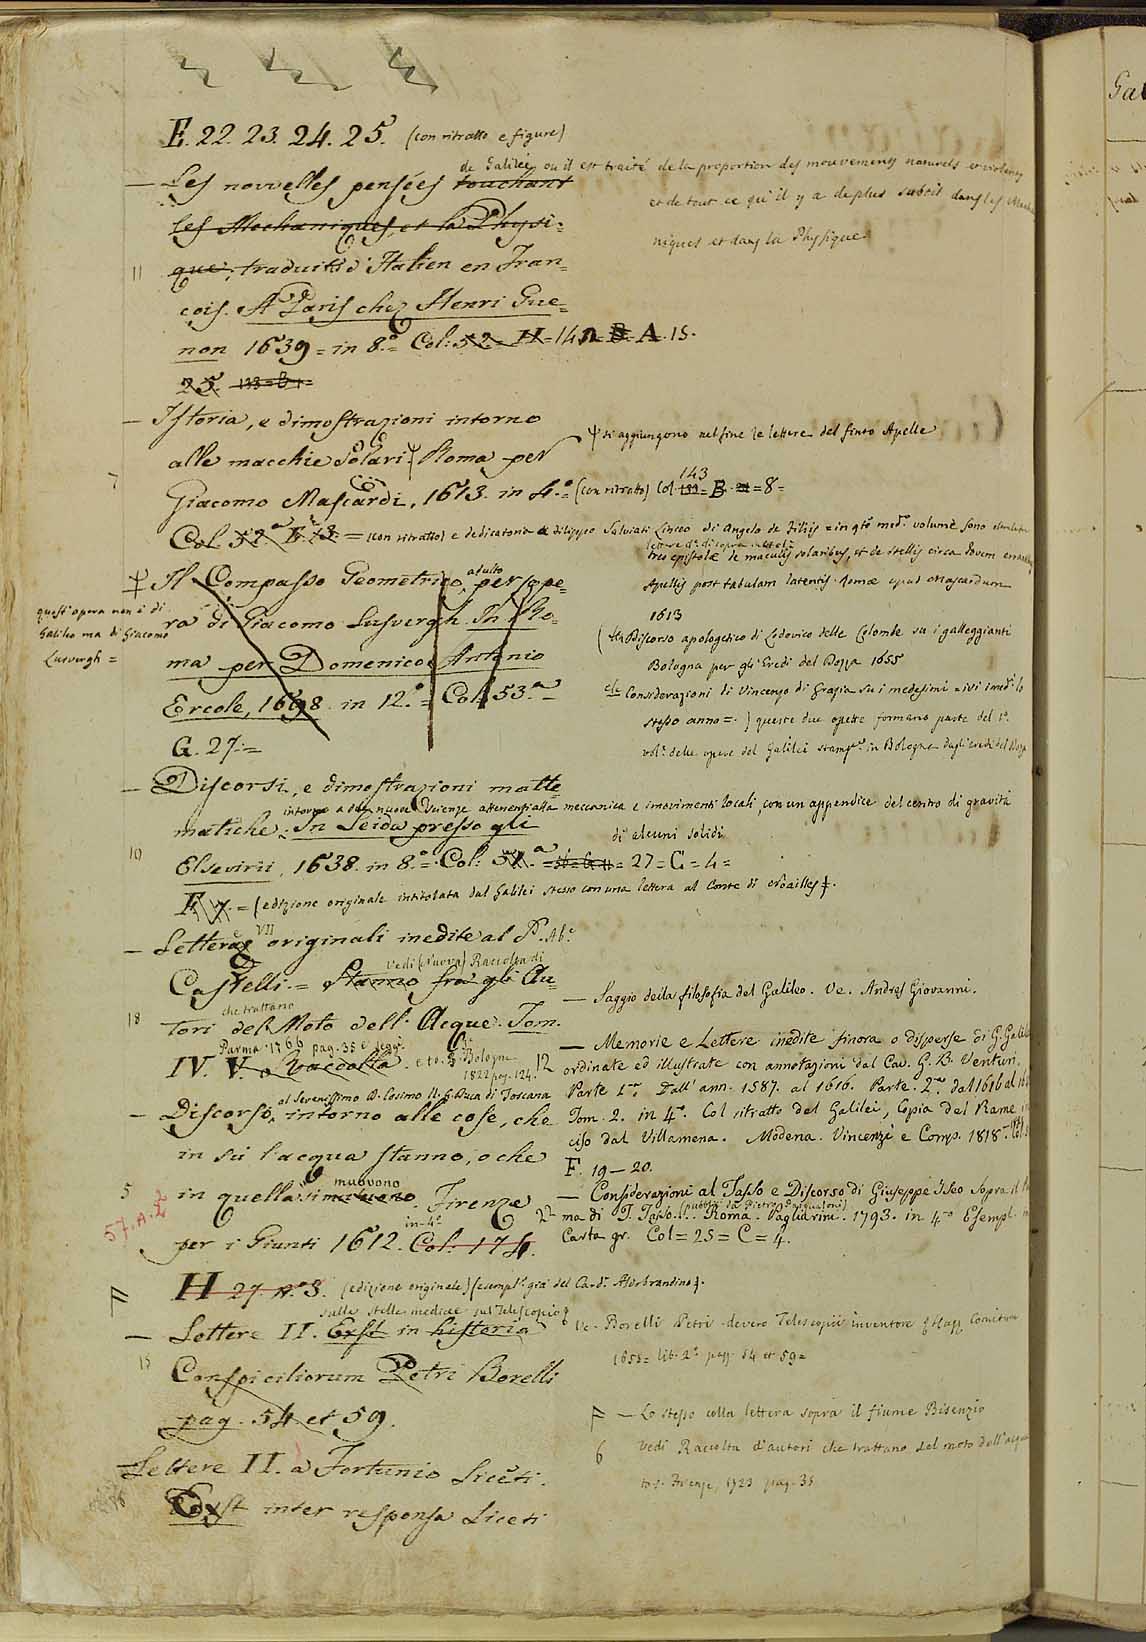 E. 22. 23. 24. 25. (con ritratto e figure)
de Galilei, ou il est traité de la proportion des mouvemens naturels et violens
— Les nouvelles pensées touchant
et de tout ce qu'il y a de plus subtil dans les
les Mechaniques, et la Physi=
niques et dans la Physique
11
que, traduit d'Italien en Fran=
cois. A Paris chez Henri Gue=
non 1639 = in 8.° = Col: 52 = H = 14 A. 15.
25.
— Istoria, e dimostrazioni intorno
si aggiungono nel fine le lettere del finto Apelle
alle macchie Solari. Roma per
7
Giacomo Mascardi, 1613. in 4.° = (con ritratto) Col. 143 = B = 8 =
Col. 52.ª = (con ritratto) e dedicatoria a Filippo Salviati Linceo di Angelo de Filiis = in qto med.° volume sono
tres epistolæ de maculis solaribus, et de stellis circa Jovem
Il Compasso Geometrico, adulto per ope=
Apellis post tabulam latentis. Romæ apud Mascardum
1613
quest'opera non è di
Galileo ma di Giacomo
Lusvergh =
ra di Giacomo Lusvergh. In Ro=
Discorso apologetico di Lodovico delle Colombe su i galleggianti
ma per Domenico Antonio
Bologna per gli Eredi del Dozza 1655
Ercole, 1698. in 12.° = Col. 53.ª =
Considerazioni di Vincenzo di Grazia su i medesimi = ivi lo
stesso anno =. ) queste due opere formano parte del 1.°
G. 27. =
vol.° delle opere del Galilei in Bologna dagli eredi del
— Discorsi, e dimostrazioni matte=
intorno a due nuove Scienze attenenti alla meccanica e i movimenti locali, con un appendice del centro di gravità
matiche. In Leida presso gli
di alcuni solidi
10
Elsevirii, 1638. in 8.° = Col: = 27 = C = 4 =
F. 7. = (edizione originale intitolata dal Galilei stesso con una lettera al Conte di Noailles).
— Lettere VII originali inedite al P. Ab.e
vedi (Nuova) Raccolta di
Castelli. = Stanno fra gli Au=
— Saggio della filosofia del Galileo. Ve. Andres Giovanni.
che trattano
18
tori del Moto dell'Acque. Tom.
Parma 1766 pag. 35 e segg.
IV. V. o Raccolta. Bologna
1822 pag. 124.
12
— Memorie e Lettere inedite finora o disperse di G. Galilei
ordinate ed illustrate con annotazioni dal Cav. G. B. Venturi.
Parte 1.ª Dall'ann. 1587. al 1616. Parte. 2.ª dal 1616 al
Tom. 2. in 4°. Col ritratto del Galilei, Copia del Rame
ciso dal Villamena. Modena. Vincenzi e Comp. 1818
F. 19 — 20.
al Serenissimo D. Cosimo II. G. Duca di Toscana
— Discorso, intorno alle cose, che
in sù l'acqua stanno, o che
5
in quella si muovono. Firenze
57. A. 2
in 4°
per i Giunti 1612. Col. 174.
2
— Considerazioni al Tasso e Discorso di Giuseppe Iseo sopra il
ma di T. Tasso. Roma. Pagliarini. 1793. in 4°
Carta gr. Col = 25 = C = 4.
H 27 3. (edizione originale) (esempl.e già del Card.e Aldobrandino).
sulle stelle medicee sul Telescopio
— Lettere II. Exst in historia
Ve. Borelli Petri de vero Telescopii inventore
1655 = lib. 2° pagg. 54 et 59 =
15
Conspiciliorum Petri Borelli
pag. 54 et 59.
— Lo stesso colla lettera sopra il fiume Bisenzio
6
vedi Raccolta d'autori che trattano del moto dell'acque
Firenze, 1723 pag. 35
Lettere II. a Fortunio Liceti.
Exst inter responsa Liceti
Gal